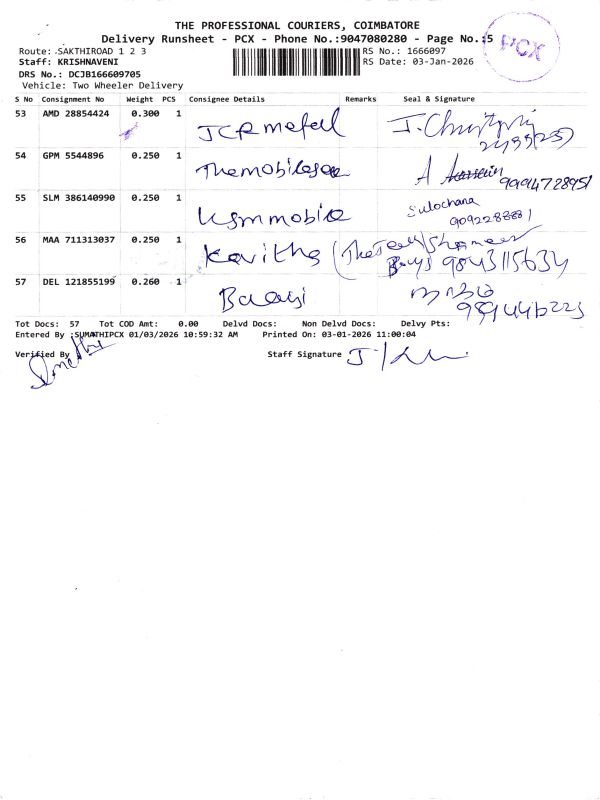 THE PROFESSIONAL COURIERS, COIMBATORE
Delivery Runsheet - PCX - Phone No.:9047080280 - Page No.:5
PCX
Route: SAKTHIROAD 1 2 3
RS No.: 1666097
Staff: KRISHNAVENI
RS Date: 03-Jan-2026
DRS No.: DCJB166609705
Vehicle: Two Wheeler Delivery
S No Consignment No Weight PCS Consignee Details Remarks Seal & Signature
53 AMD 28854424 0.300 1 JCR
54 GPM 5544896 0.250 1 Themobile
9994728951
55 SLM 386140990 0.250 1 Sulochana
56 MAA 711313037 0.250 1 Kavitha
9843115634
57 DEL 121855199 0.260 1 Balaji
Tot Docs: 57 Tot COD Amt: 0.00 Delvd Docs: Non Delvd Docs: Delvy Pts:
Entered By :SUMATHIPCX 01/03/2026 10:59:32 AM Printed On: 03-01-2026 11:00:04
Verified By Staff Signature